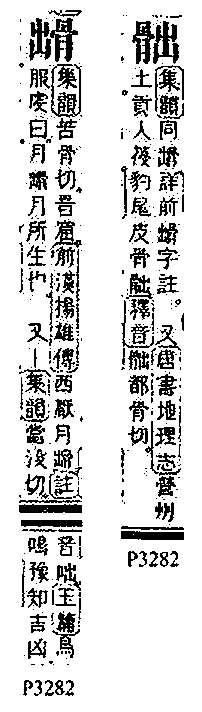 集韻同𩨳詳前𩨳字註。又唐書地理志營州
土貢人葠豹尾皮骨 釋音 都骨切。
P3282
𩨳
集韻苦骨切音窟前漢揚雄傳西厭月𩨳註
服虔曰月𩨳月所生也 又丨集韻當沒切
音咄玉篇鳥
鳴豫知吉凶
P3282